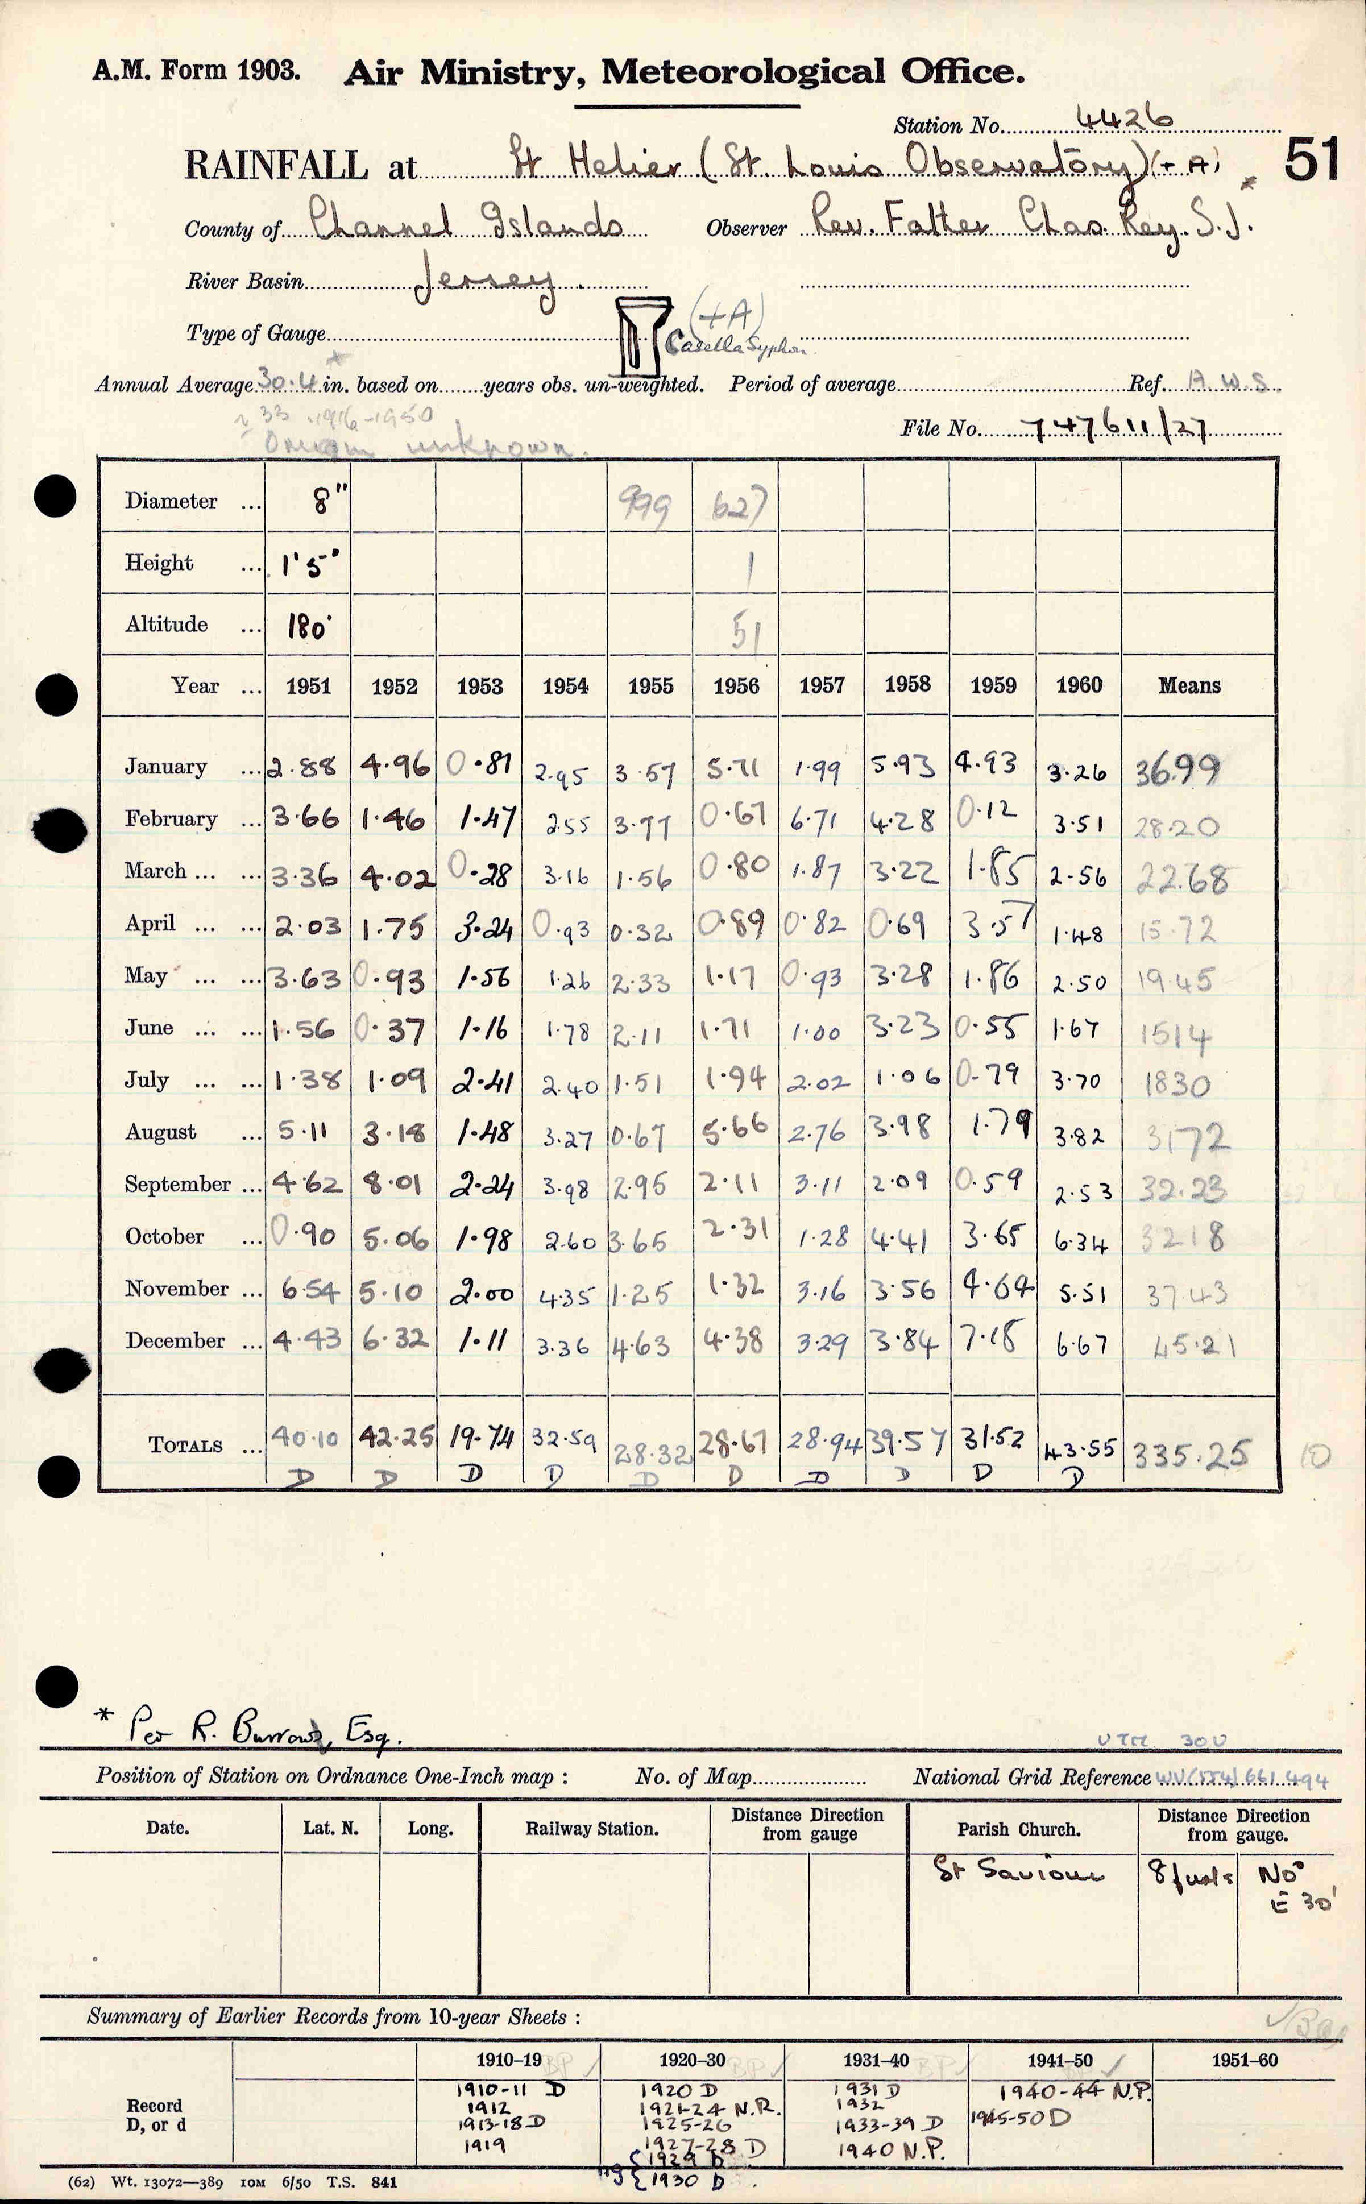 A.M. Form 1903. Air Ministry, Meteorological Office.
Station No. 4426
RAINFALL at St Helier (St. Louis Observatory) (+A) 51
County of Channel Islands Observer Rev. Father Chas. Rey. S.J. *
River Basin Jersey
Type of Gauge (+A) Casella Syphon
Annual Average 30.4 in. based on years obs. un-weighted. Period of average Ref. A.W.S.
33 1916-1950 File No. 747611/27
Origin unknown.
Diameter ... 8" 999 627
Height ... 1'5" 1
Altitude ... 180' 51
Year ... 1951 1952 1953 1954 1955 1956 1957 1958 1959 1960 Means
January ... 2.88 4.96 0.81 2.95 3.57 5.71 1.99 5.93 4.93 3.26 36.99
February ... 3.66 1.46 1.47 2.55 3.77 0.67 6.71 4.28 0.12 3.51 28.20
March ... ... 3.36 4.02 0.28 3.16 1.56 0.80 1.87 3.22 1.85 2.56 22.68
April ... ... 2.03 1.75 3.24 0.93 0.32 0.89 0.82 0.69 3.57 1.48 15.72
May ... ... 3.63 0.93 1.56 1.26 2.33 1.17 0.93 3.28 1.86 2.50 19.45
June ... ... 1.56 0.37 1.16 1.78 2.11 1.71 1.00 3.23 0.55 1.67 1514
July ... ... 1.38 1.09 2.41 2.40 1.51 1.94 2.02 1.06 0.79 3.70 1830
August ... 5.11 3.18 1.48 3.27 0.67 5.66 2.76 3.98 1.79 3.82 3172
September ... 4.62 8.01 2.24 3.98 2.95 2.11 3.11 2.09 0.59 2.53 32.23
October ... 0.90 5.06 1.98 2.60 3.65 2.31 1.28 4.41 3.65 6.34 3218
November ... 6.54 5.10 2.00 4.35 1.25 1.32 3.16 3.56 4.64 5.51 37.43
December ... 4.43 6.32 1.11 3.36 4.63 4.38 3.29 3.84 7.18 6.67 45.21
TOTALS ... 40.10 42.25 19.74 32.59 28.32 28.67 28.94 39.57 31.52 43.55 335.25 10
D D D D D D D D D D
* Per R. Burrows, Esq.
UTM 30U
Position of Station on Ordnance One-Inch map : No. of Map National Grid Reference WV(554) 661 494
Date. Lat. N. Long. Railway Station. Distance Direction from gauge Parish Church. Distance Direction from gauge.
St Saviour 8 furls No°
E 30'
Summary of Earlier Records from 10-year Sheets :
1910–19 1920–30 1931–40 1941–50 1951–60
Record D, or d
1910-11 D 1920 D 1931 D 1940-44 N.P.
1912 1921-24 N.R. 1932 1945-50 D
1913-18 D 1925-26 1933-39 D
1919 1927-28 D 1940 N.P.
1929 D
1930 D
(62) Wt. 13072—389 10M 6/50 T.S. 841